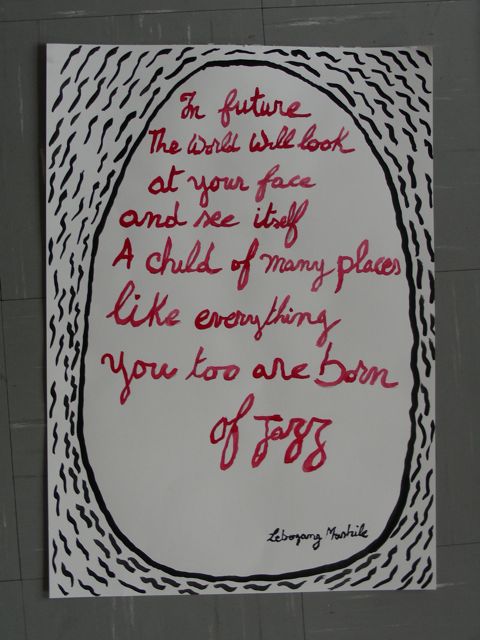 In future
The World Will look
at your face
and see itself
A child of many places
like everything
you too are born
of jazz
Lebogang Mashile